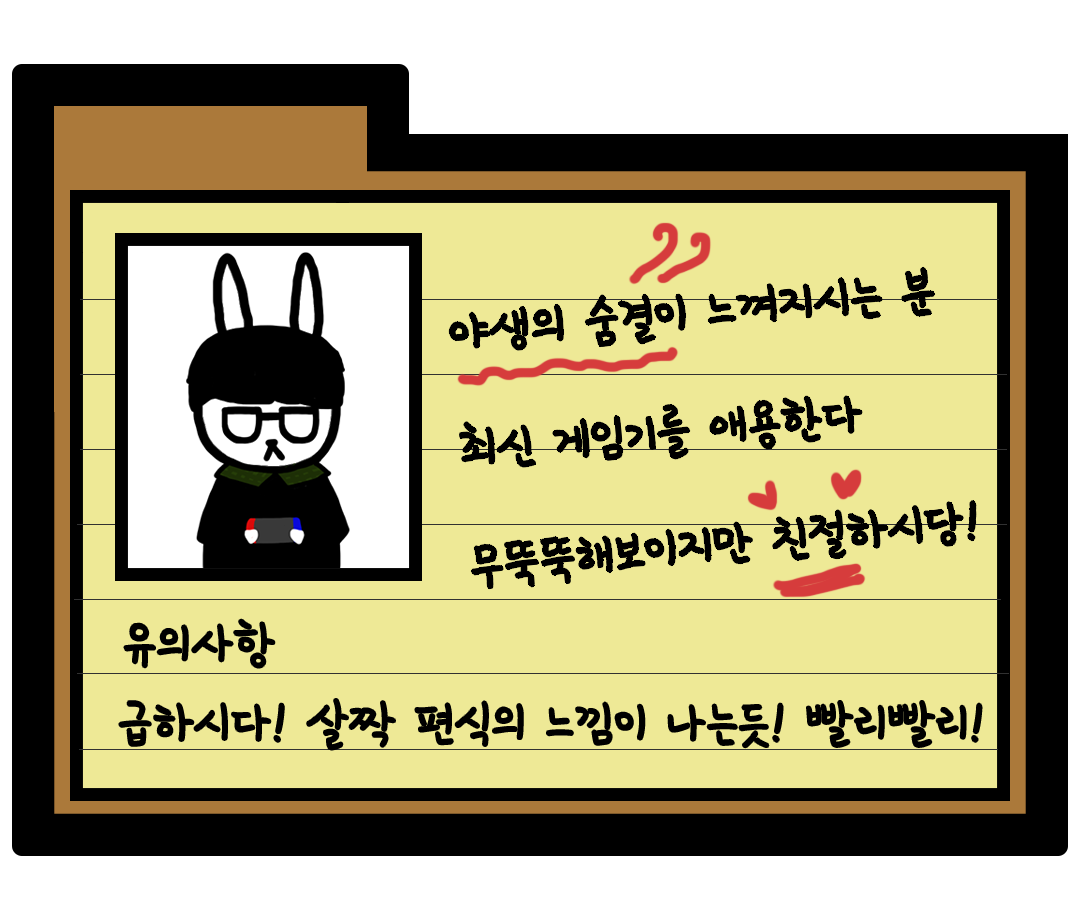 야생의 숨결이 느껴지시는 분
최신 게임기를 애용한다
무뚝뚝해보이지만 친절하시당!
유의사항
급하시다! 살짝 편식의 느낌이 나는듯! 빨리빨리!